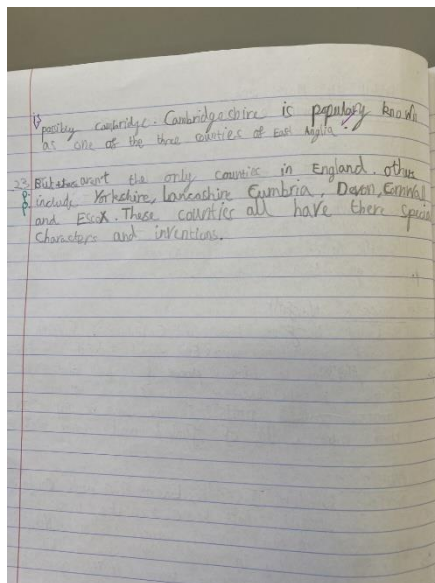 is
possibly cambridge. Cambridgeshire is popularly known
as one of the three counties of East Anglia.
23. But aren't the only counties in England. other
include Yorkshire, Lancashire Cumbria, Devon, Cornwall
and Essax. These counties all have there special
characters and inventions.